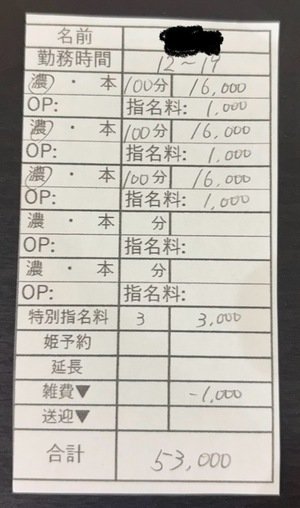 名前
勤務時間 12〜19
濃・本 100分 16,000
OP: 指名料: 1,000
濃・本 100分 16,000
OP: 指名料: 1,000
濃・本 100分 16,000
OP: 指名料: 1,000
濃・本 分
OP: 指名料:
濃・本 分
OP: 指名料:
特別指名料 3 3,000
姫予約
延長
雑費▼ -1,000
送迎▼
合計 53,000